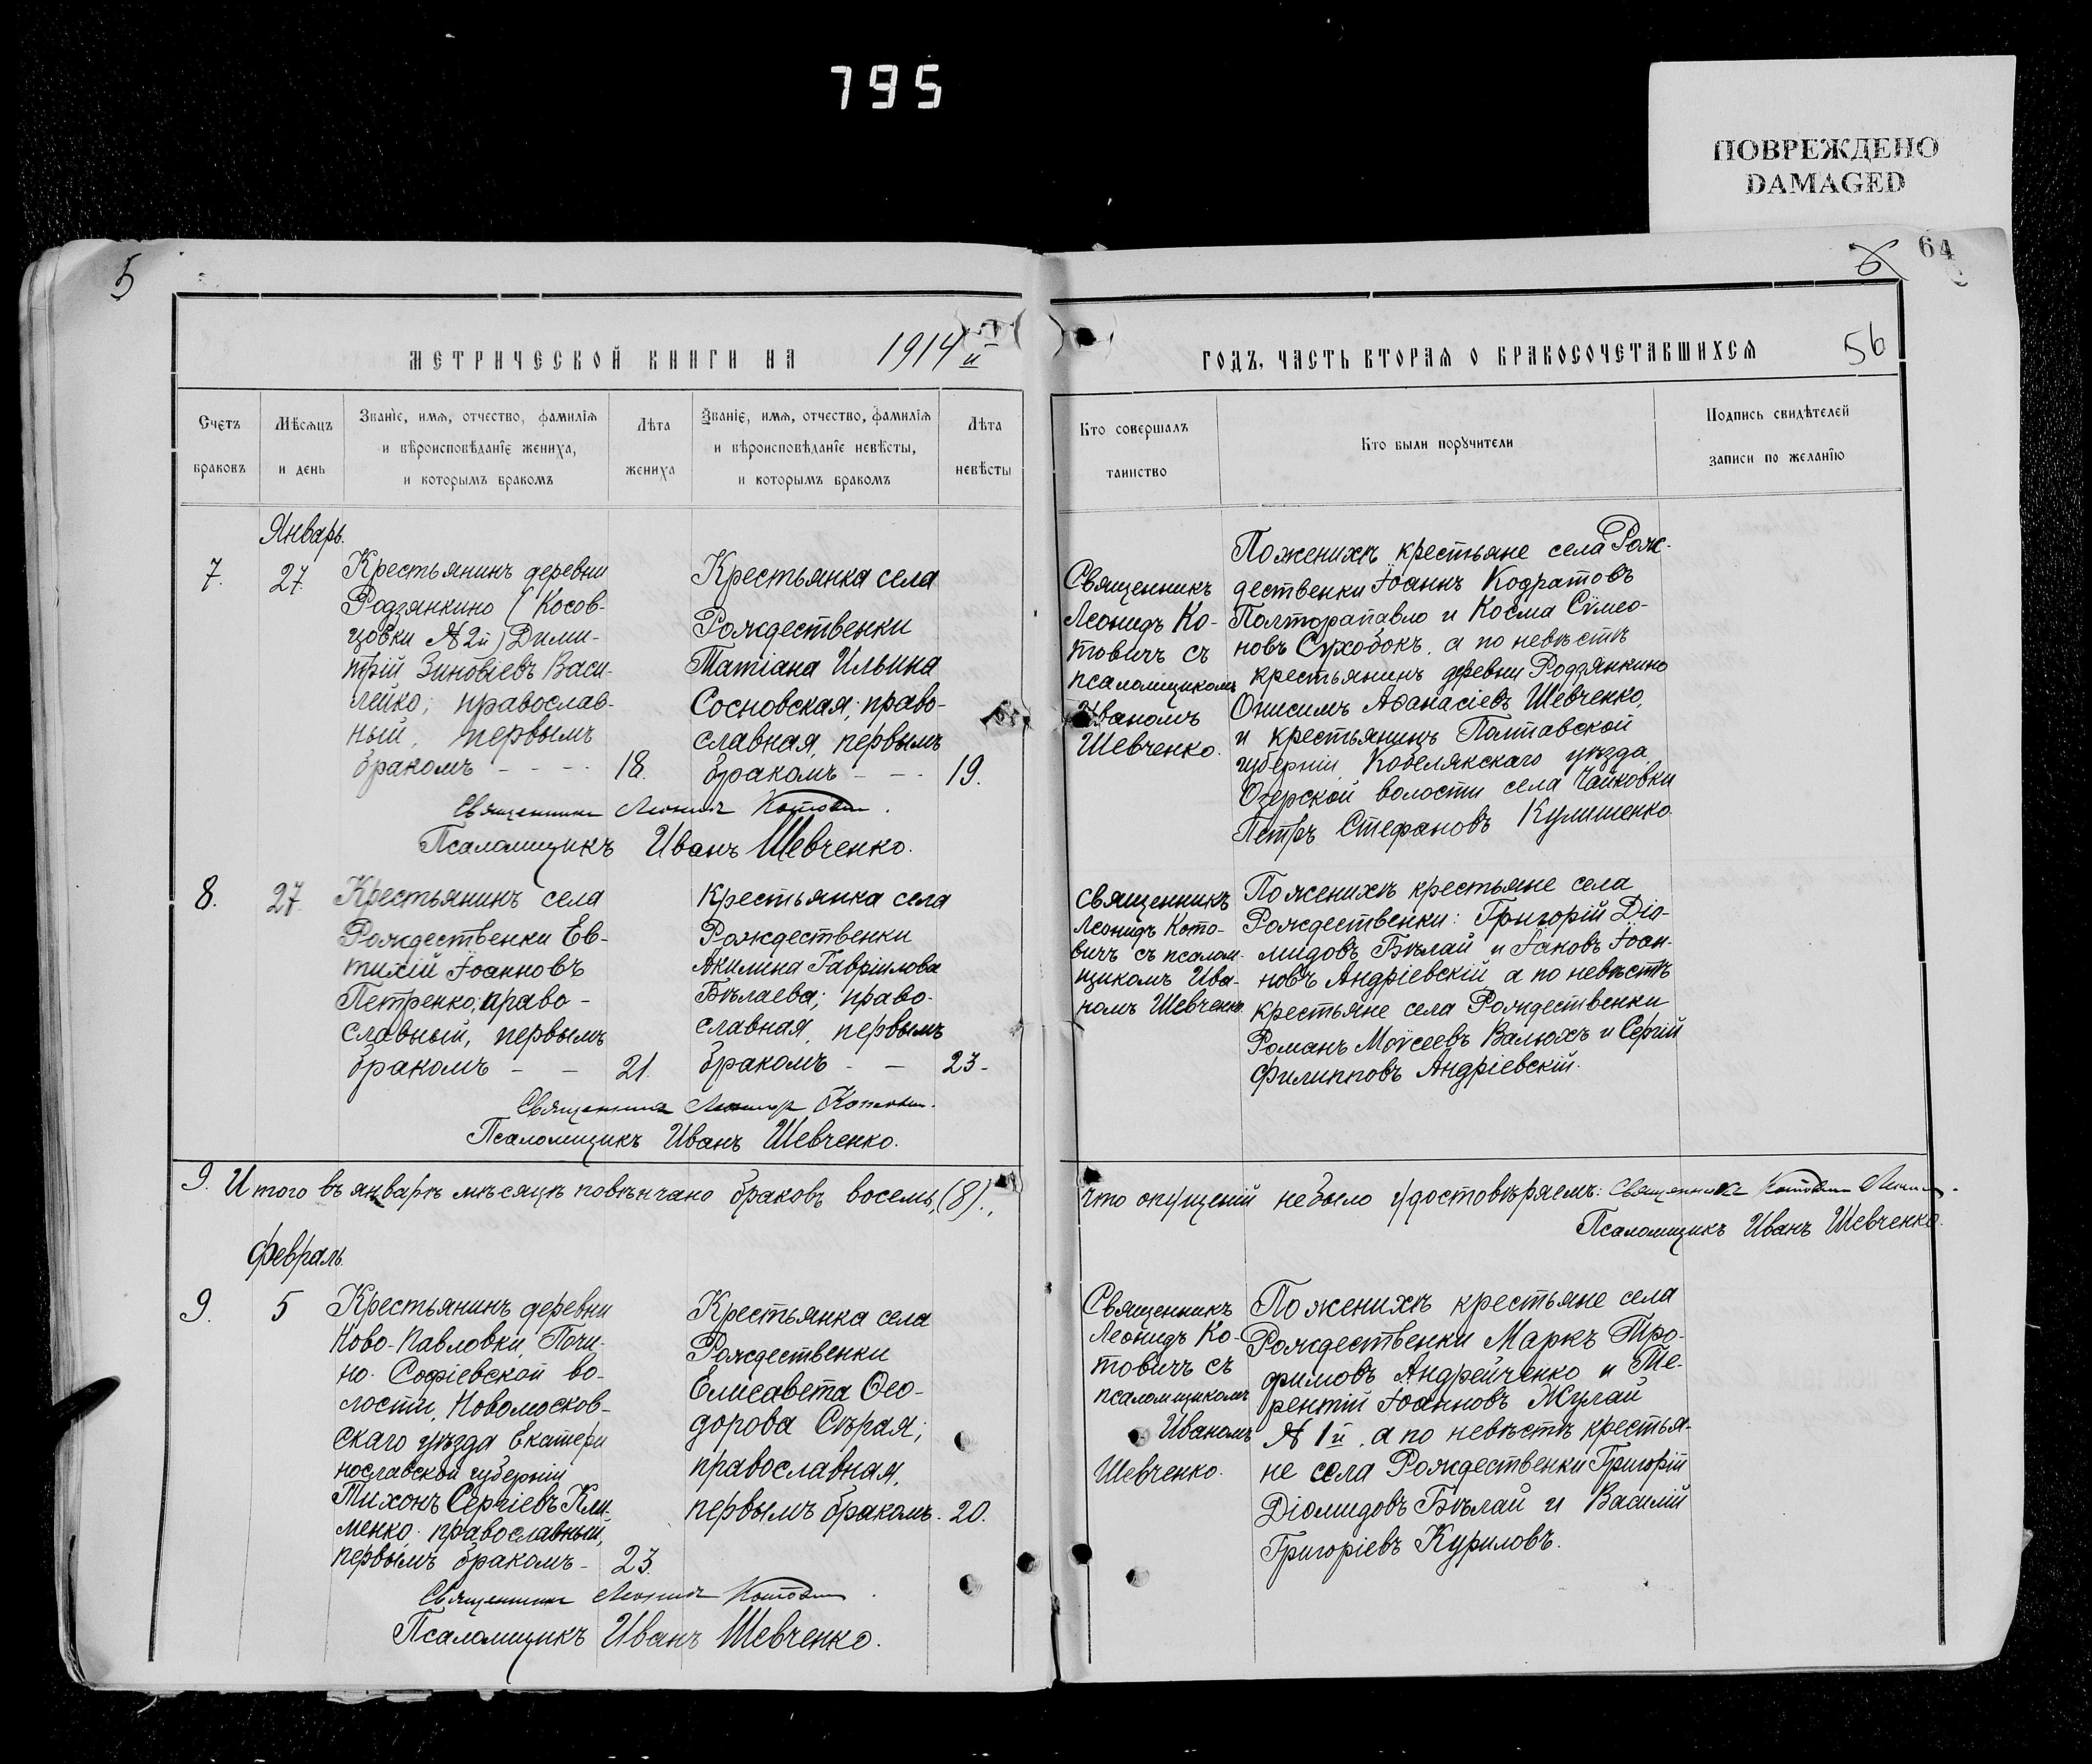 795
ПОВРЕЖДЕНО
DAMAGED
5
6
64
МЕТРИЧЕСКОЙ КНИГИ НА 1914 й
Счетъ браковъ
Мѣсяцъ и день
Званіе, имя, отчество, фамилія
и вѣроисповѣданіе жениха,
и которымъ бракомъ
Лѣта жениха
Званіе, имя, отчество, фамилія
и вѣроисповѣданіе невѣсты,
и которымъ бракомъ
Лѣта невѣсты
ГОДЪ, ЧАСТЬ ВТОРАЯ О БРАКОСОЧЕТАВШИХСЯ
56
Кто совершалъ
таинство
Кто были поручители
Подпись свидѣтелей
записи по желанію
Январь.
7.
27.
Крестьянинъ деревни
Родзянкино (Косов-
цовки № 2й) Дими-
трій Зиновіевъ Васи-
лейко; православ-
ный, первымъ
бракомъ - - - -
18.
Крестьянка села
Рождественки
Татіана Ильина
Сосновская; право-
славная, первымъ
бракомъ - - -
19.
Священникъ
Леонидъ Ко-
товичъ съ
псаломщикомъ
Иваномъ
Шевченко.
По женихѣ крестьяне села Рож-
дественки Іоаннъ Кодратовъ
Полторапавло и Косма Сѵмео-
новъ Сухобокъ, а по невѣстѣ
крестьянинъ деревни Родзянкино
Онисимъ Аѳанасіевъ Шевченко,
и крестьянинъ Полтавской
губерніи, Кобелякскаго уѣзда,
Озерской волости села Чайковки
Петръ Стефановъ Кулишенко.
Священникъ Леонидъ Котович.
Псаломщикъ Иванъ Шевченко.
8.
27.
Крестьянинъ села
Рождественки Ев-
тихій Іоанновъ
Петренко; право-
славный, первымъ
бракомъ - -
21.
Крестьянка села
Рождественки
Акилина Гавріилова
Бѣлаева; право-
славная, первымъ
бракомъ - -
23-
Священникъ
Леонидъ Кото-
вичъ съ псалом-
щикомъ Ива-
номъ Шевченко.
По женихѣ крестьяне села
Рождественки: Григорій Діо-
мидовъ Бѣлай и Іаковъ Іоан-
новъ Андріевскій, а по невѣстѣ
крестьяне села Рождественки
Романъ Моѵсеевъ Валюхъ и Сергій
Филипповъ Андріевскій.
Священникъ Леонидъ Котович.
Псаломщикъ Иванъ Шевченко.
9. Итого въ январѣ мѣсяцѣ повѣнчано браковъ восемь, (8).,
что опущеній не было удостовѣряемъ: Священникъ Котович Леонид.
Псаломщикъ Иванъ Шевченко.
Февраль.
9.
5
Крестьянинъ деревни
Ново-Павловки, Почи-
но-Софіевской во-
лости, Новомосков-
скаго уѣзда Екатери
нославской губерніи
Тихонъ Сергіевъ Кли-
менко православный,
первымъ бракомъ -
23.
Крестьянка села
Рождественки
Елисавета Ѳео-
дорова Сѣрая;
православная,
первымъ бракомъ.
20.
Священникъ
Леонидъ Ко-
товичъ съ
псаломщикомъ
Иваномъ
Шевченко.
По женихѣ крестьяне села
Рождественки Маркъ Тро-
фимовъ Андрейченко и Те-
рентій Іоанновъ Жулай
№ 1й, а по невѣстѣ крестья-
не села Рождественки Григорій
Діомидовъ Бѣлай и Василій
Григоріевъ Куриловъ.
Священникъ Леонидъ Котович.
Псаломщикъ Иванъ Шевченко.